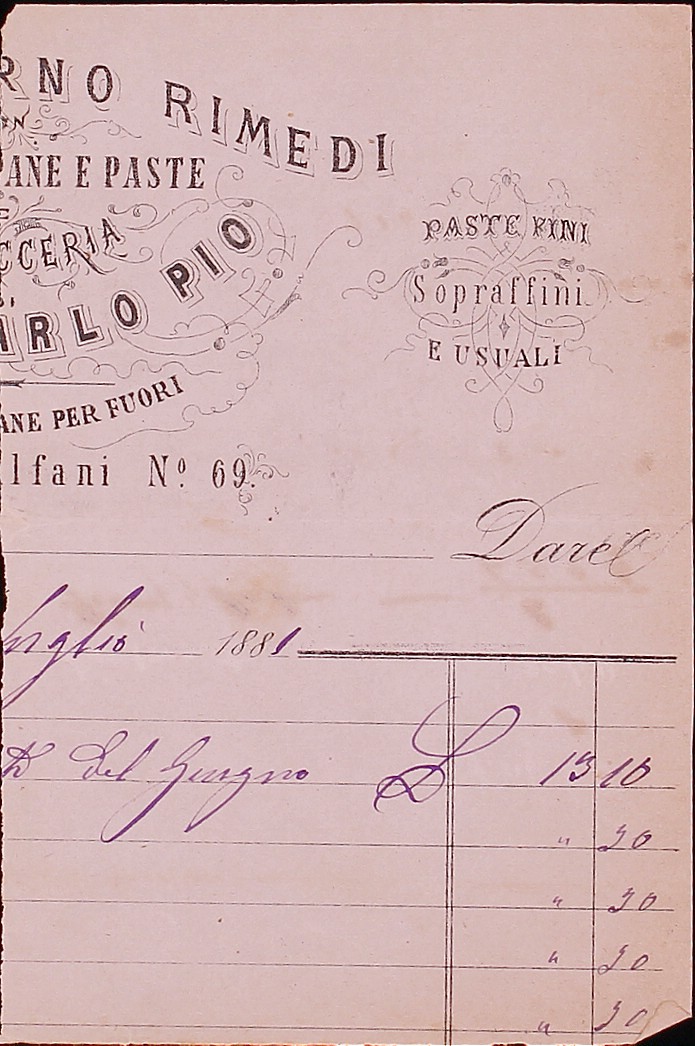 RNO RIMEDI
ANE E PASTE
CCERIA
RLO PIO
ANE PER FUORI
lfani Nº 69.
PASTE FINI
Sopraffini
E USUALI
Dare
luglio 1881
del Giugno L 13 10
" 30
" 30
" 30
" 30